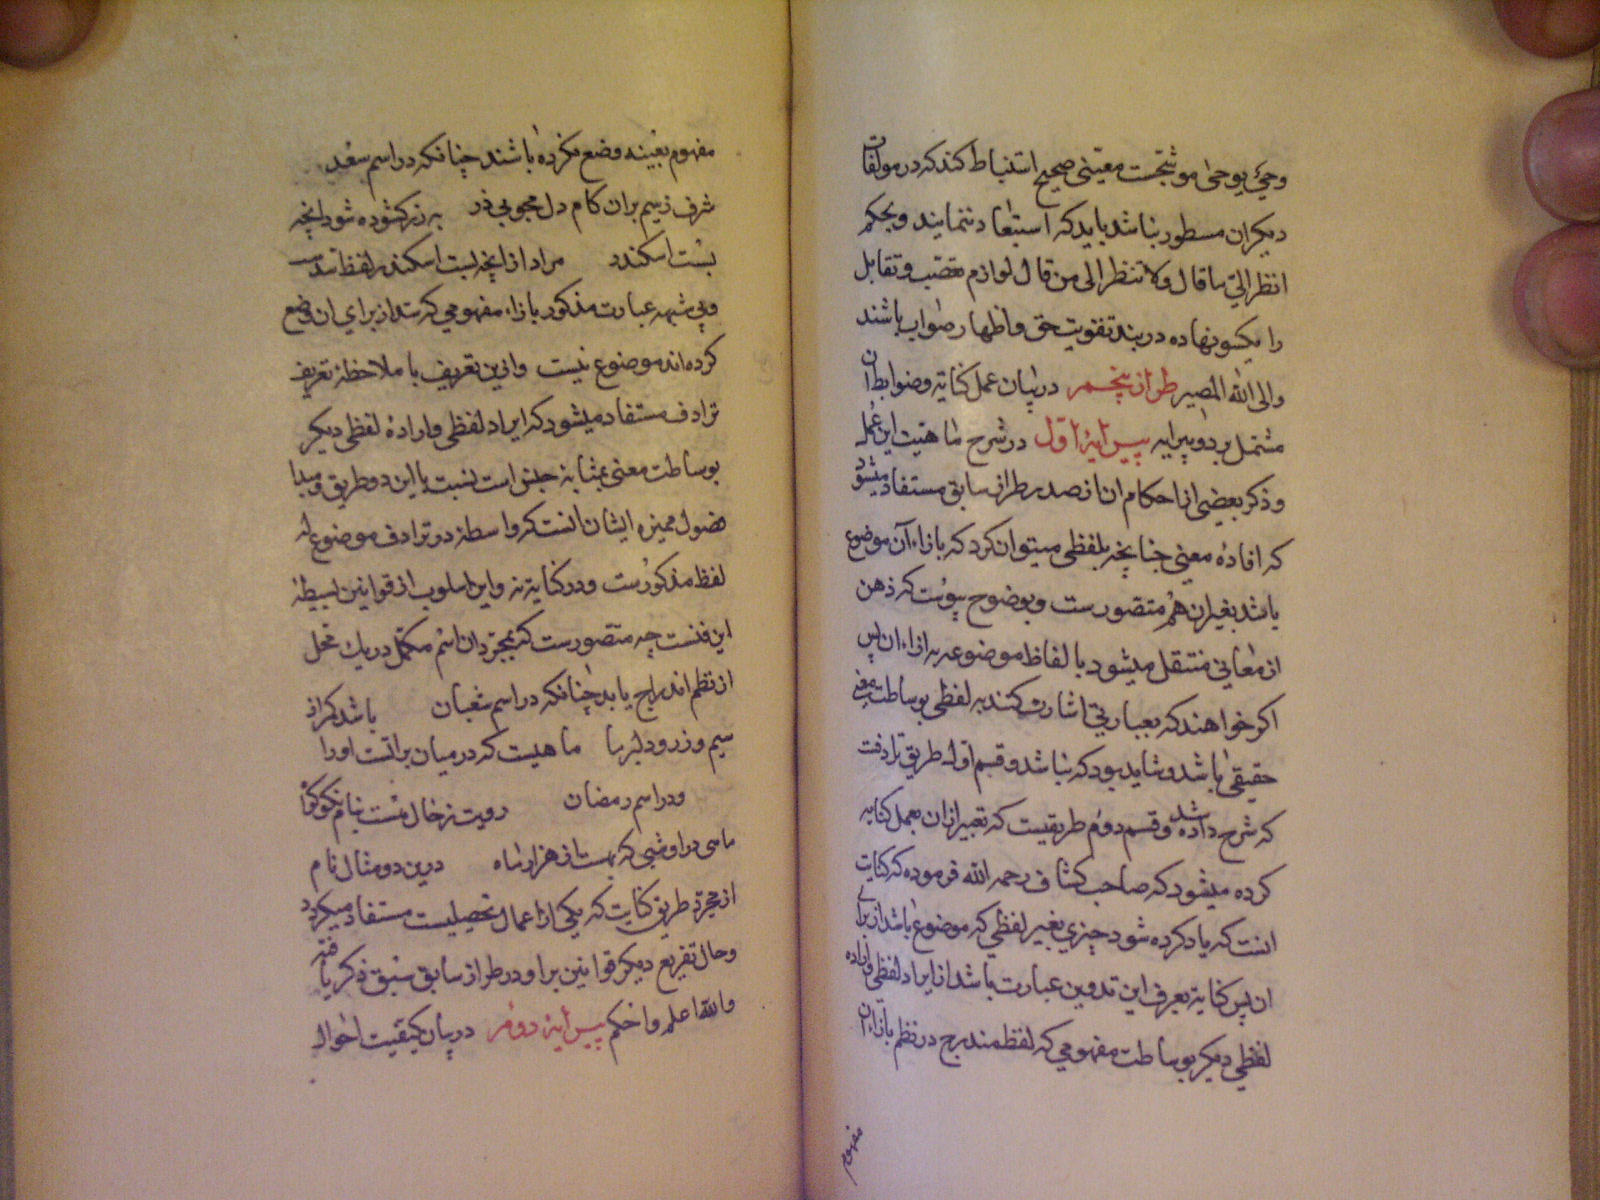 وحیٌ یوحی موشحست معینی صحیح استنباط کند که در مولفات
دیکران مسطور نباشد باید که استبعاد ننمایند و بحکم
انظر الی ما قال ولا تنظر الی من قال لوازم تعصب و تقابل
را یکسو نهاده در بند تقویت حق و اظهار صواب باشند
والی الله المصیر طراز پنجم در بیان عمل کنایة و ضوابط آن
مشتمل بر دو پیرایه پیرایهٔ اول در شرح ماهیت این عمل
و ذکر بعضی از احکام ان از صدر طراز سابق مستفاد میشود
که افادهٔ معنی جنانچه بلفظی میتوان کرد که بازاء آن موضوع
باشد بغیر ان هم متصورست و بوضوح پیوست که ذهن
از معانی منتقل میشود بالفاظ موضوعه بازاء ان پس
اکر خواهند که بعبارتی اشارت کنند به لفظی بوساطت معنی
حقیقی باشد و شاید بود که نباشد و قسم اول طریق ترادفت
که شرح داده شد و قسم دوم طریقیست که تعبیر ازان بعمل کنایه
کرده میشود که صاحب کشاف رحمه الله فرموده که کنایت
انست که یاد کرده شود چیزی بغیر لفظی که موضوع باشد از برای
ان پس کنایة بعرف این تدوین عبارت باشد از ایراد لفظی و اراده
لفظی دیکر بوساطت مفهومی که لفظ مندرج در نظم بازاء ان
مفهوم
مفهوم بعینه وضع نکرده باشند چنانکه در اسم سعد
شرف زسیم بران کام دل مجوبی زر به زر کشوده شود انچه
بست اسکندر مراد از انچه بست اسکندر لفظ سدست
و بی شبهه عبارت مذکور بازاء مفهومی که سد از برای ان وضع
کرده اند موضوع نیست و ازین تعریف با ملاحظهٔ تعریف
ترادف مستفاد میشود که ایراد لفظی و ارادهٔ لفظی دیکر
بوساطت معنی بمثابهٔ جنس است نسبت با این دو طریق و مبدا
فصول ممیزه ایشان انست که واسطه در ترادف موضوع له
لفظ مذکورست و در کنایة نه و این اسلوب از قوانین بسیطهٔ
این فنست چه متصورست که بمجرد ان اسم مکمل در یك محل
از نظم اندراج یابد چنانکه در اسم شعبان باشد کمر از
سیم و زر و دلبر ما ماهیست که در میان براتست او را
و در اسم رمضان رویت ز خال مست بنام نکو کوا
ماهی در او شبی که بهست از هزار ماه درین دو مثال نام
از مجرد طریق کنایت که یکی از اعمال تحصیلیست مستفاد میکردد
و حال تفریع دیکر قوانین برو در طراز سابق سبق ذکر یافته
والله اعلم و احکم پیرایهٔ دوم در بیان کیفیت احوال